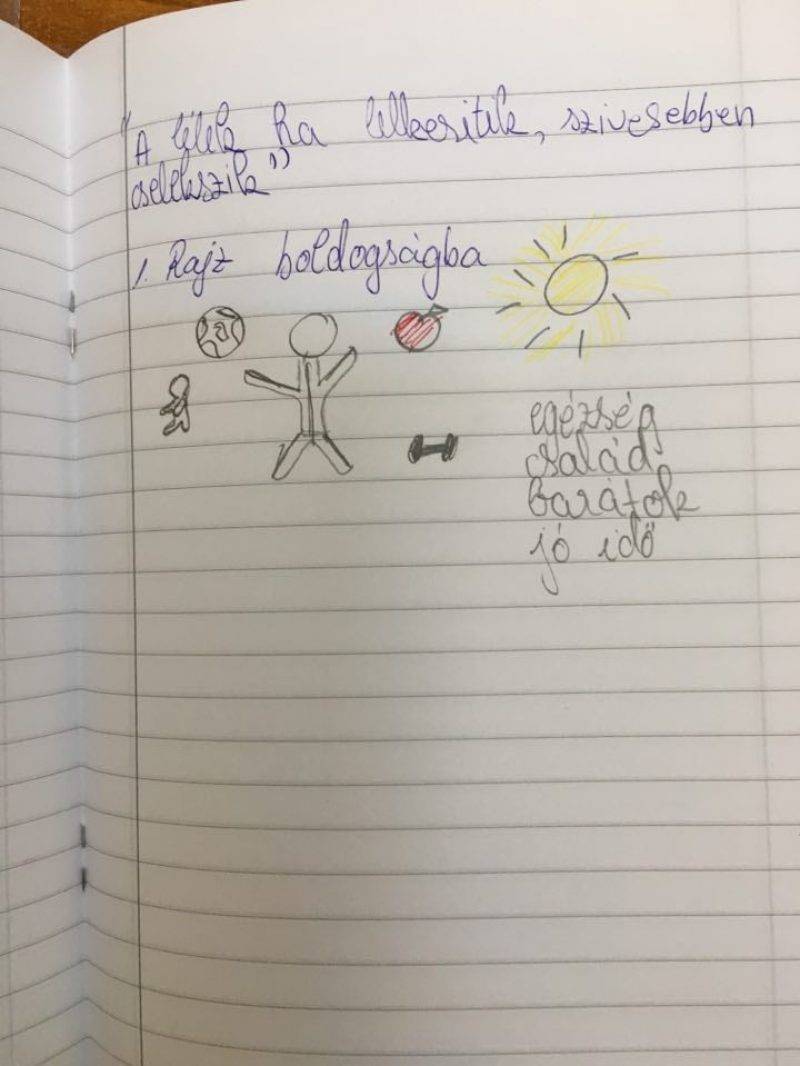 "A lélek ha lelkesitik, szivesebben
cselekszik"
1. Rajz boldogságba
egézség
család
barátok
jó idő